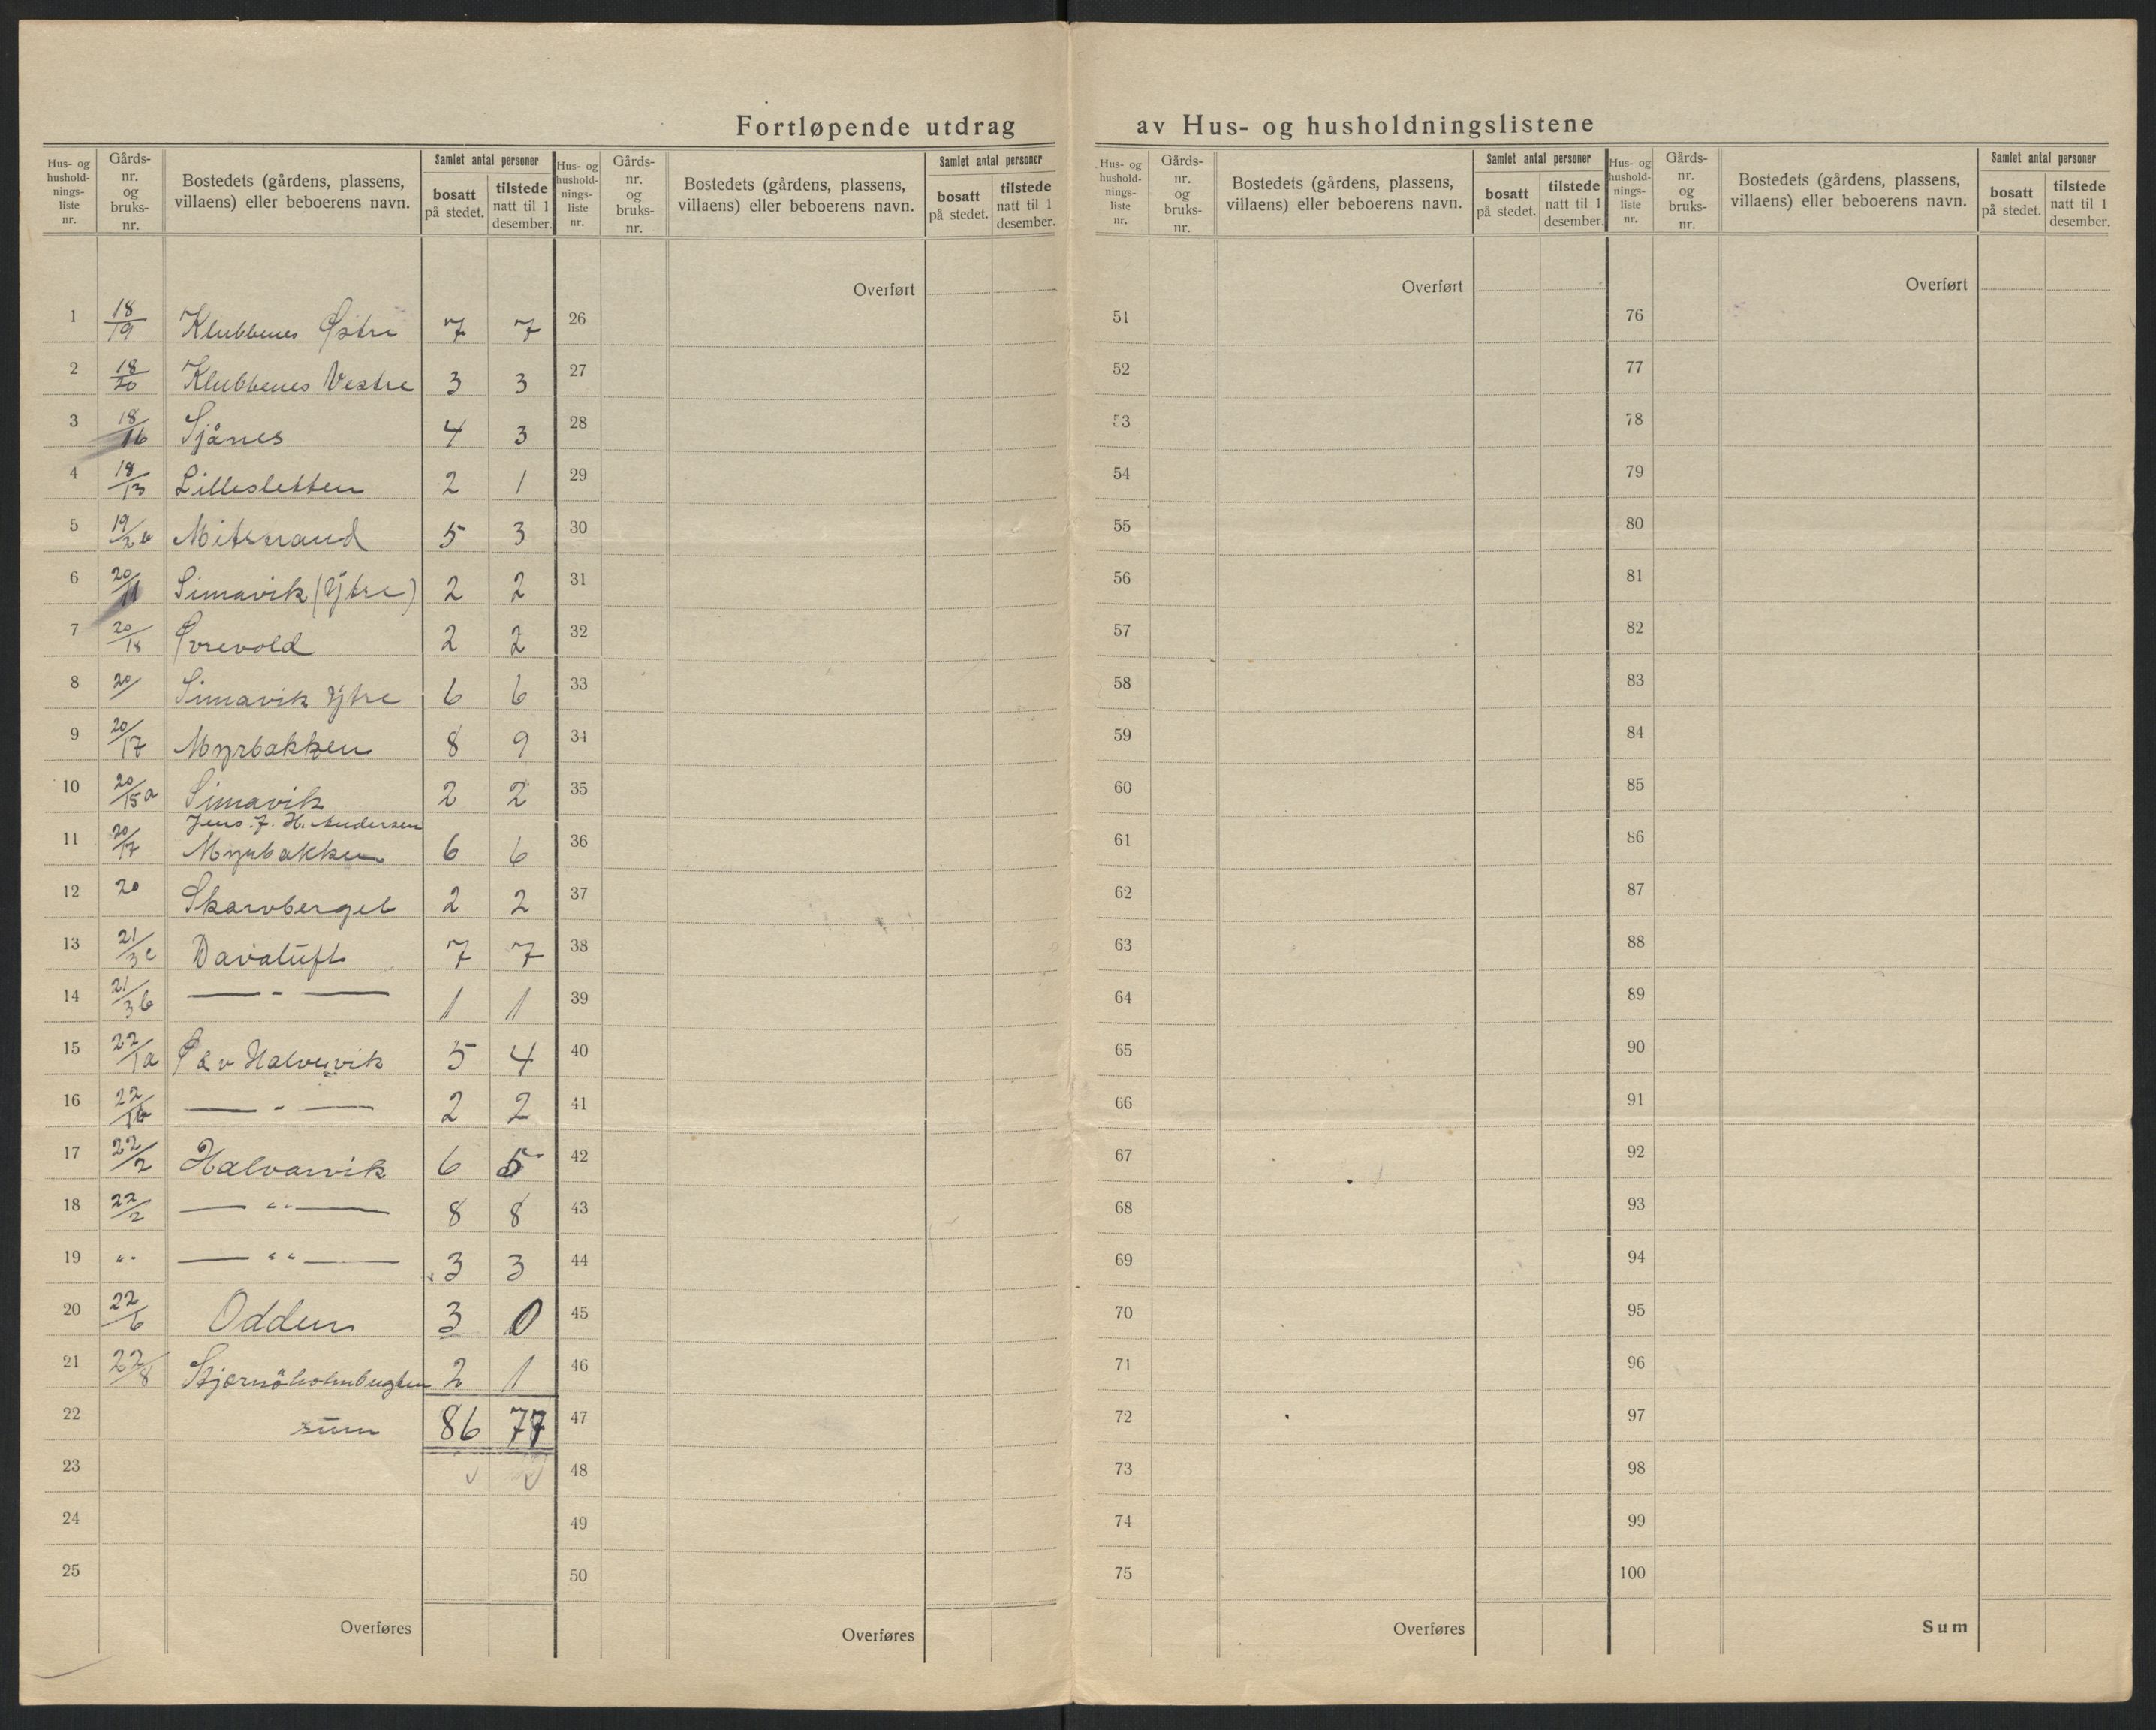 Fortløpende utdrag av Hus- og husholdningslistene
Hus- og hushold-nings-liste nr. | Gårds-nr. og bruks-nr. | Bostedets (gårdens, plassens, villaens) eller beboerens navn. | Samlet antal personer | bosatt på stedet. | tilstede natt til 1 desember.
Hus- og hushold-nings-liste nr. | Gårds-nr. og bruks-nr. | Bostedets (gårdens, plassens, villaens) eller beboerens navn. | Samlet antal personer | bosatt på stedet. | tilstede natt til 1 desember.
Hus- og hushold-nings-liste nr. | Gårds-nr. og bruks-nr. | Bostedets (gårdens, plassens, villaens) eller beboerens navn. | Samlet antal personer | bosatt på stedet. | tilstede natt til 1 desember.
Hus- og hushold-nings-liste nr. | Gårds-nr. og bruks-nr. | Bostedets (gårdens, plassens, villaens) eller beboerens navn. | Samlet antal personer | bosatt på stedet. | tilstede natt til 1 desember.
Overført Overført Overført
1 18/19 Klubbenes Østre 7 7 26 51 76
2 18/20 Klubbenes Vestre 3 3 27 52 77
3 18/16 Sjånes 4 3 28 53 78
4 18/13 Lillesletten 2 1 29 54 79
5 19/2b 5 3 30 55 80
6 20/11 Simavik (Ytre) 2 2 31 56 81
7 20/18 Øvrevold 2 2 32 57 82
8 20/ Simavik Ytre 6 6 33 58 83
9 20/17 Myrbakken 8 9 34 59 84
10 20/15a Simavik 2 2 35 60 85
Jens. J. H. Andersen
11 20/17 Myrbakken 6 6 36 61 86
12 20 Skarvberget 2 2 37 62 87
13 21/3c Davatuft 7 7 38 63 88
14 21/3b — " — 1 1 39 64 89
15 22/1a Ø av Halvarvik 5 4 40 65 90
16 22/1b — " — 2 2 41 66 91
17 22/2 Halvarvik 6 5 42 67 92
18 22/2 — " — 8 8 43 68 93
19 " — " — 3 3 44 69 94
20 22/6 Odden 3 0 45 70 95
21 22/8 Stjernöholmbugten 2 1 46 71 96
22 sum 86 77 47 72 97
23 48 73 98
24 49 74 99
25 50 75 100
Overføres Overføres Overføres Sum